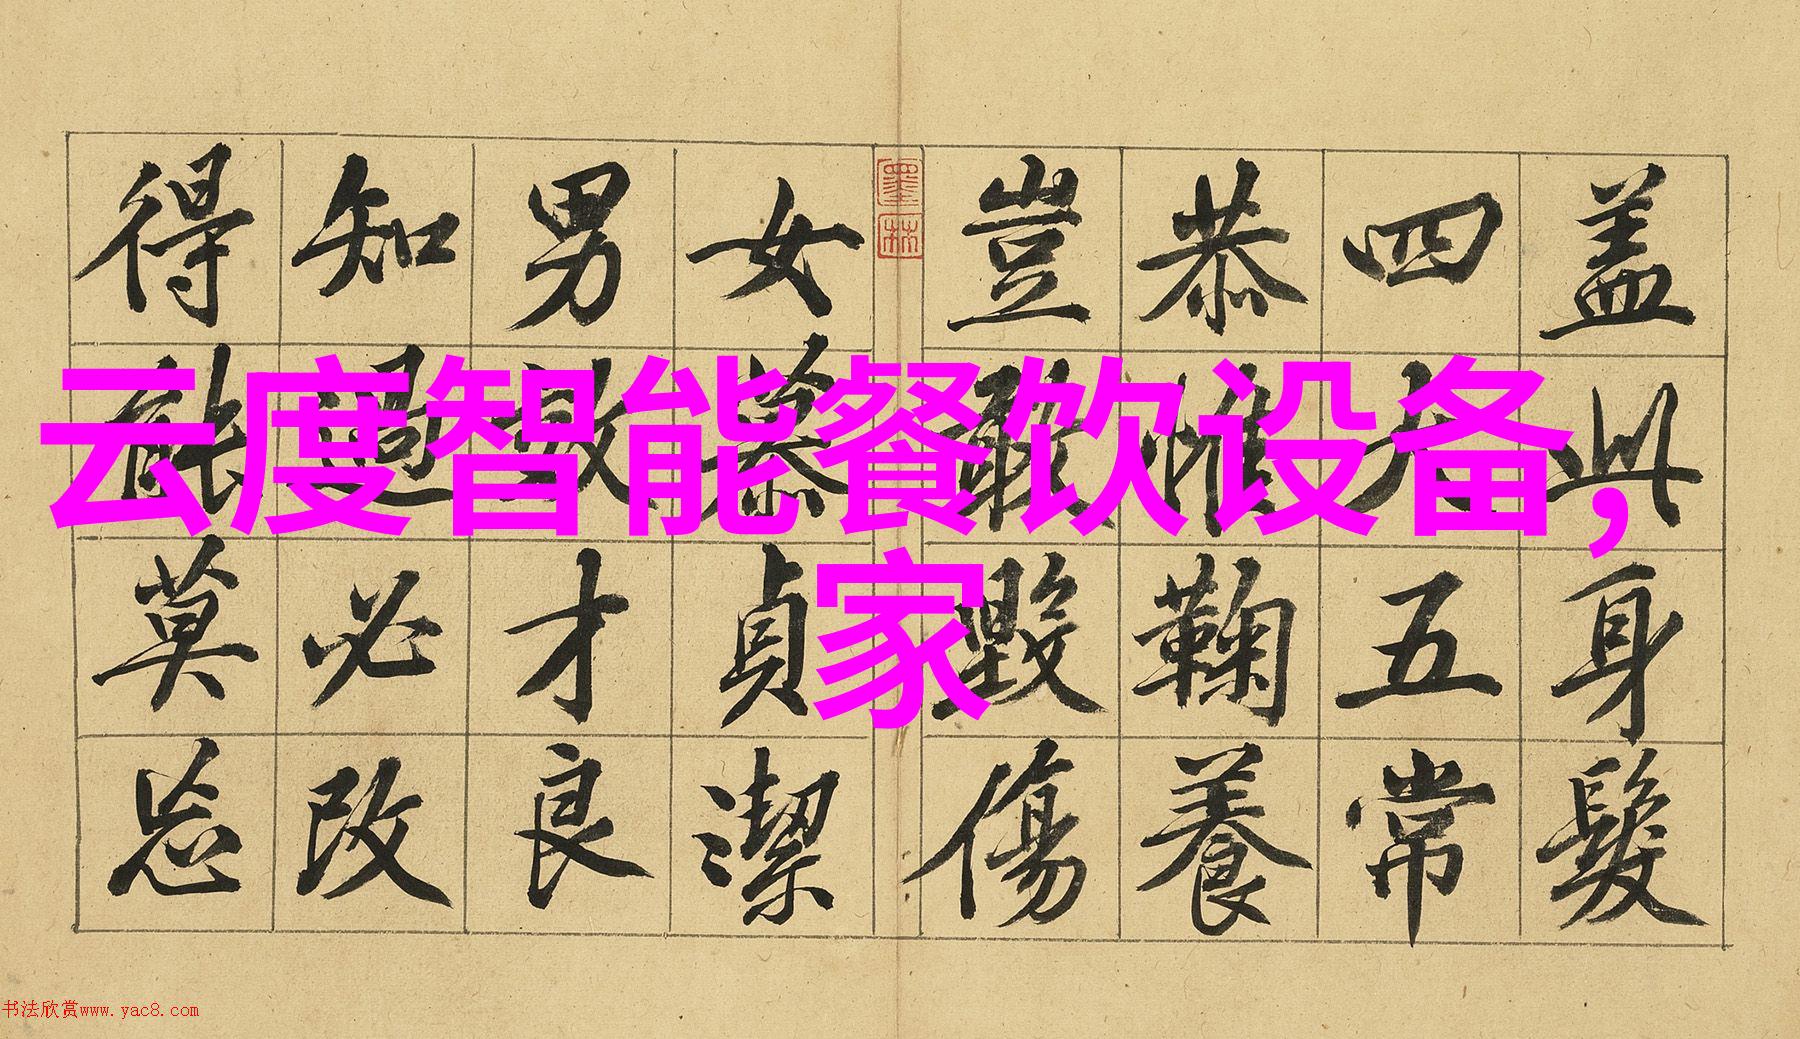 云度智能餐饮设备,
家
盖此身髮
四大五常
恭惟鞠養
豈敢毀傷
墨林
女慕貞潔
男效才良
知過必改
得能莫忘
书法欣赏www.yac8.com